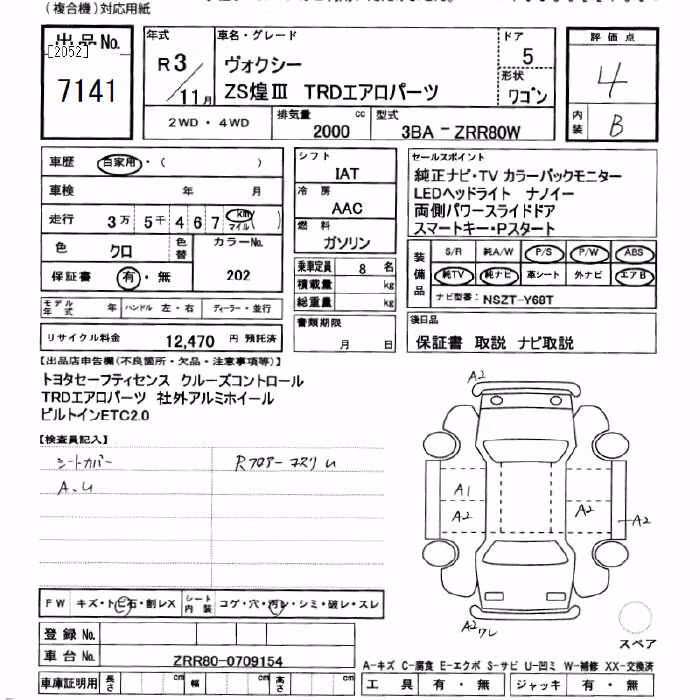 (複合機)対応用紙
出品No.
[2052]
7141
年式
R3/11月
車名・グレード
ヴォクシー
ZS煌Ⅲ TRDエアロパーツ
ドア
5
形状
ワゴン
2WD・4WD
排気量
2000 cc
型式
3BA-ZRR80W
評価点
4
内装
B
車歴 自家用・( )
車検 年 月
走行 3万 5千 4 6 7 km マイル ( )
色 クロ 色替 カラーNo.
202
保証書 有・無
モデル年式 年 ハンドル 左・右 ディーラー・並行
リサイクル料金 12,470 円 預託済
シフト
IAT
冷房
AAC
燃料
ガソリン
乗車定員 8 名
積載量 kg
総重量 kg
書類期限
月 日
セールスポイント
純正ナビ・TV カラーバックモニター
LEDヘッドライト ナノイー
両側パワースライドドア
スマートキー・Pスタート
装備品
S/R 純A/W P/S P/W ABS
純TV 純ナビ 革シート 外ナビ エアB
ナビ型番: NSZT-Y68T
後日品
保証書 取説 ナビ取説
【出品店申告欄(不良箇所・欠品・注意事項等)】
トヨタセーフティセンス クルーズコントロール
TRDエアロパーツ 社外アルミホイール
ビルトインETC2.0
【検査員記入】
シートカバー
A.U
Rフロアー コスリ U
A2
A1
A2
A2
A2
A2 ワレ
スペア
FW キズ・トビ石・割レX シート内装 コゲ・穴・汚レ・シミ・破レ・スレ
登録No.
車台No. ZRR80-0709154
車庫証明用 長さ cm 幅 cm 高さ cm
A-キズ C-腐食 E-エクボ S-サビ U-凹ミ W-補修 XX-交換済
工具 有・無 ジャッキ 有・無